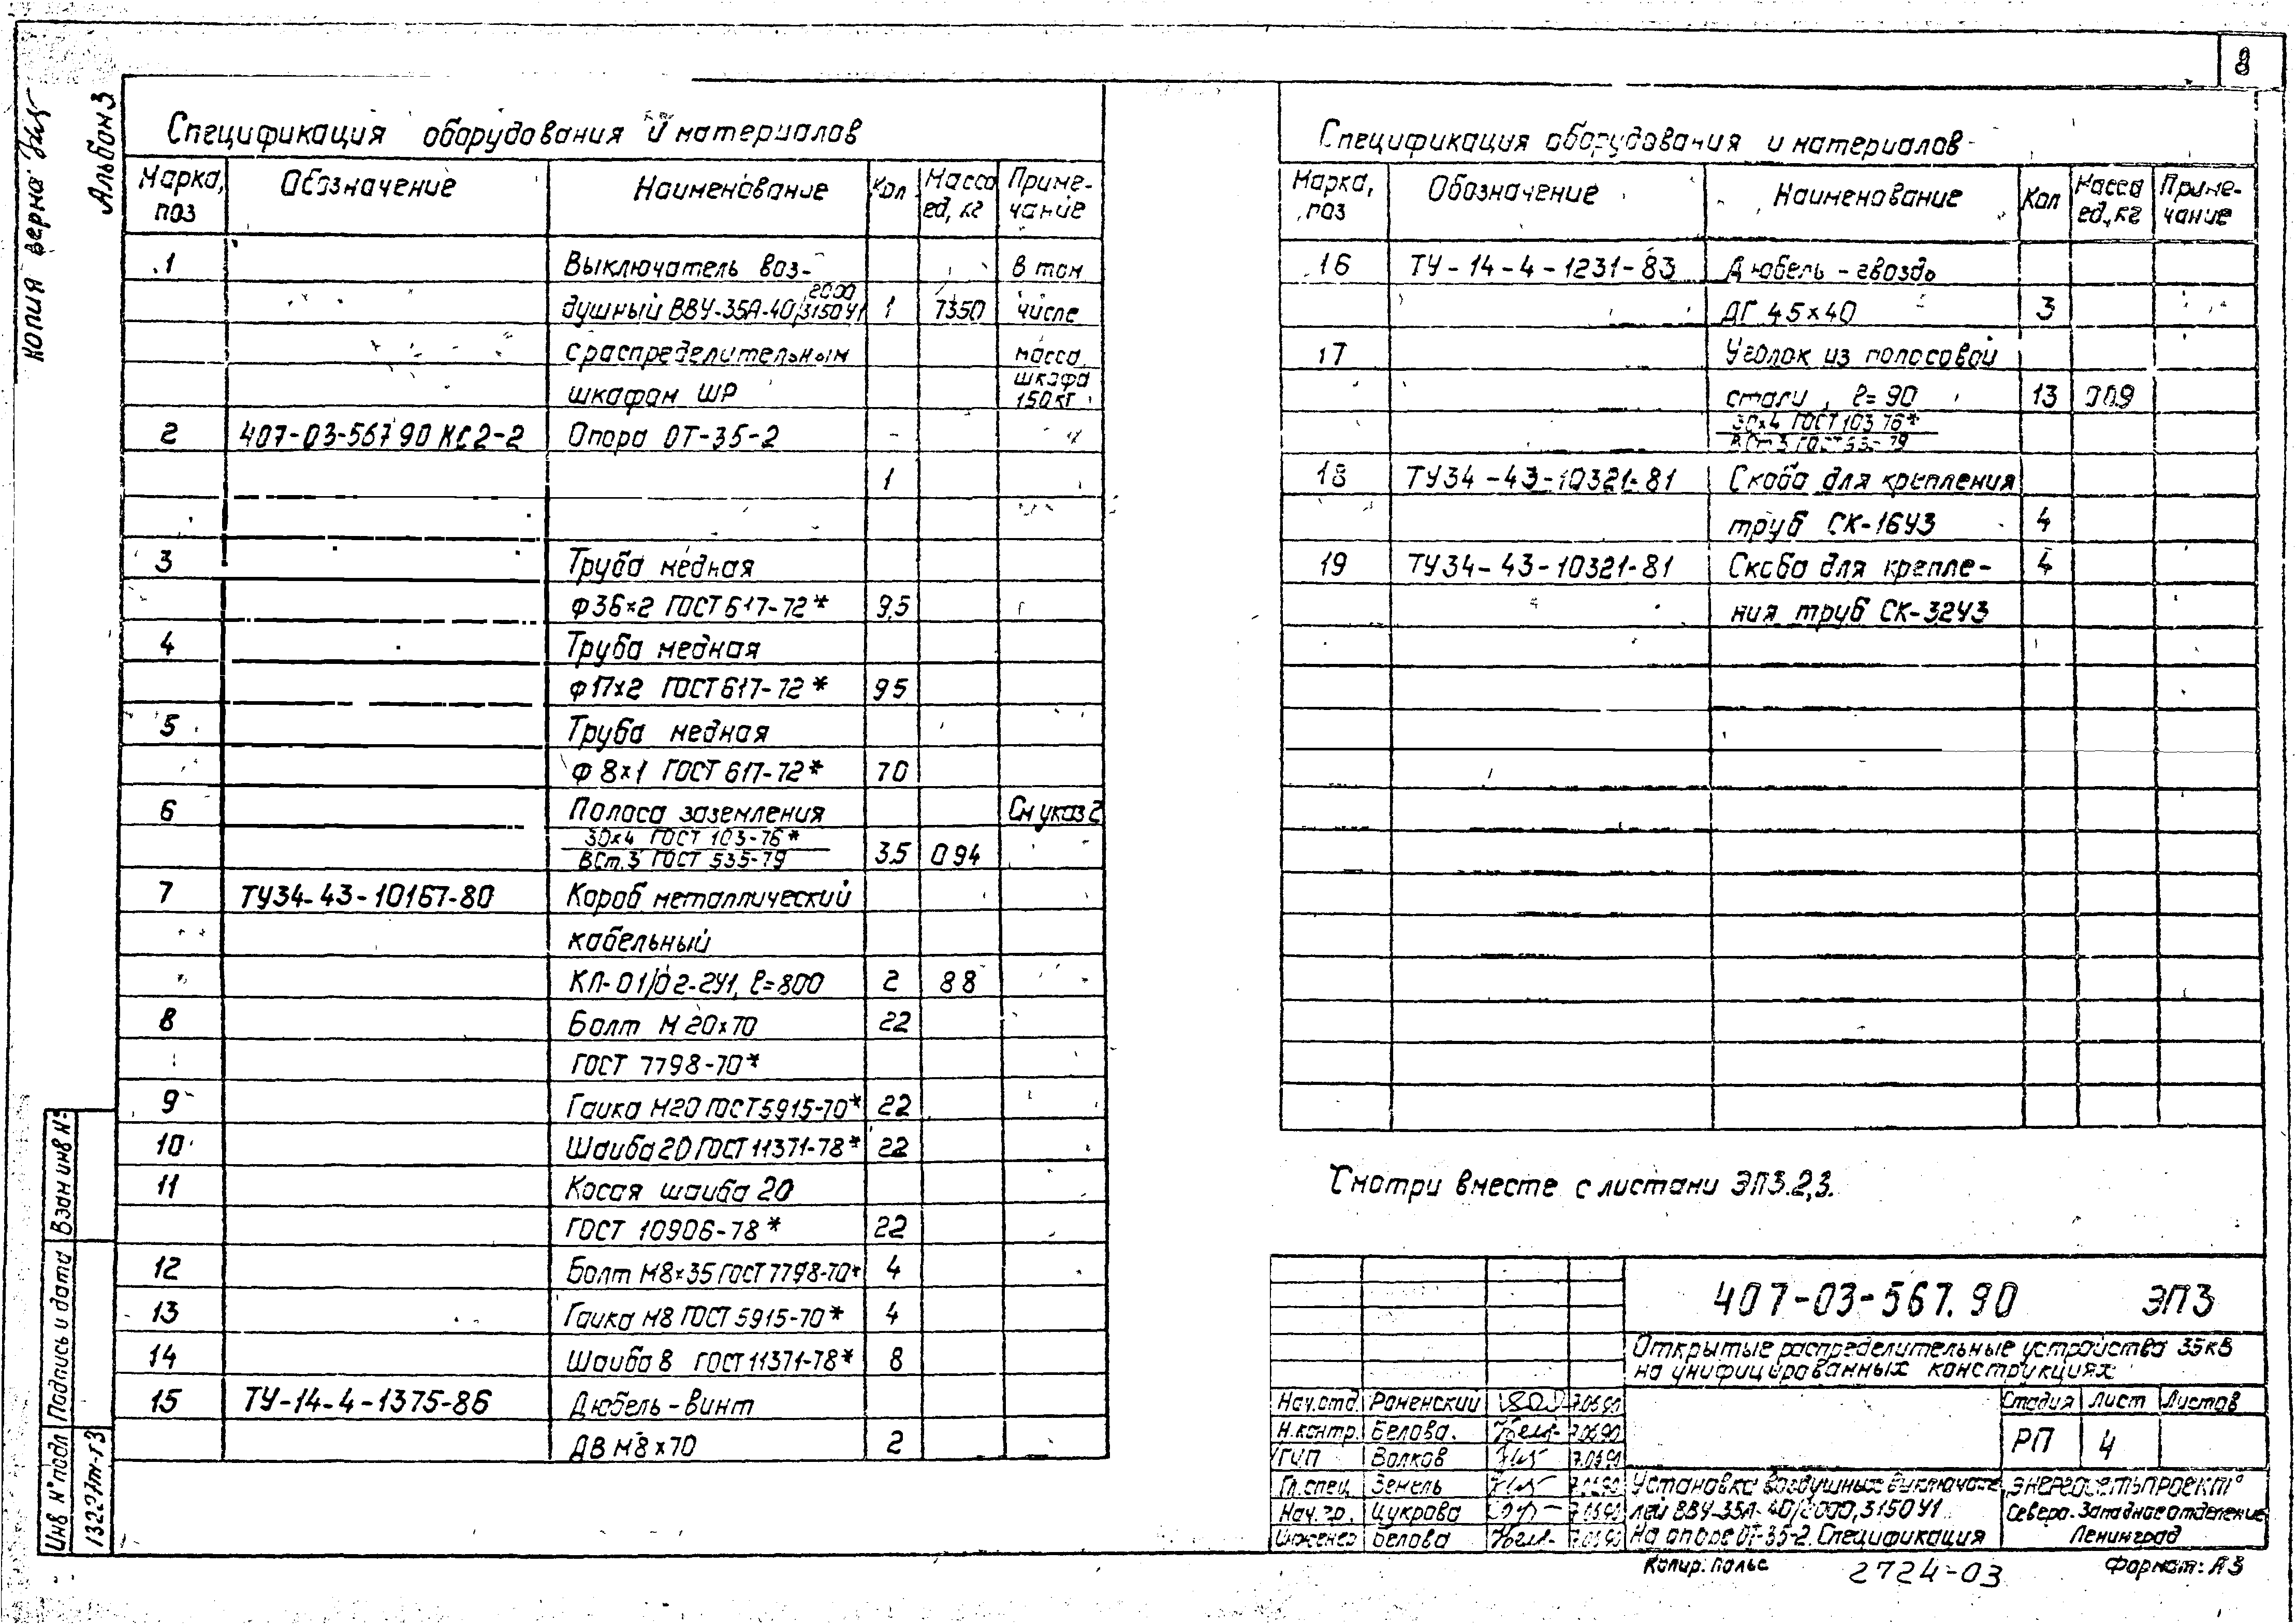 8
Копия верна
Альбом 3
Спецификация оборудования и материалов
Марка, поз Обозначение Наименование Кол Масса ед, кг Приме-чание
1 Выключатель воз- в том
душный ВВУ-35А-40/2000/3150У1 1 7350 числе
с распределительным масса
шкафом ШР шкафа 150кг
2 407-03-567 90 КС2-2 Опора ОТ-35-2 -
1
3 Труба медная
Ф36×2 ГОСТ 617-72* 9,5
4 Труба медная
Ф17×2 ГОСТ 617-72* 95
5 Труба медная
Ф 8×1 ГОСТ 617-72* 70
6 Полоса заземления См указ 2
30×4 ГОСТ 103-76*
ВСт.3 ГОСТ 535-79 3.5 0 94
7 ТУ34-43-10167-80 Короб металлический
кабельный
КЛ-01/02-2У1, ℓ=800 2 8 8
8 Болт М 20×70 22
ГОСТ 7798-70*
9 Гайка М20 ГОСТ 5915-70* 22
10 Шайба 20 ГОСТ 11371-78* 22
11 Косая шайба 20
ГОСТ 10906-78* 22
12 Болт М8×35 ГОСТ 7798-70* 4
13 Гайка М8 ГОСТ 5915-70* 4
14 Шайба 8 ГОСТ 11371-78* 8
15 ТУ-14-4-1375-86 Дюбель-винт
ДВ М8×70 2
Спецификация оборудования и материалов
Марка, поз Обозначение Наименование Кол Масса ед., кг Приме-чание
16 ТУ-14-4-1231-83 Дюбель-гвоздь
ДГ 4.5×40 3
17 Уголок из полосовой
стали, ℓ=90 13 0 09
30×4 ГОСТ 103 76*
ВСт.3 ГОСТ 535-79
18 ТУ34-43-10321-81 Скоба для крепления
труб СК-16У3 4
19 ТУ34-43-10321-81 Скоба для крепле- 4
ния труб СК-32У3
Смотри вместе с листами ЭП3.2,3.
407-03-567.90 ЭП3
Открытые распределительные устройства 35кВ
на унифицированных конструкциях
Нач.отд. Роменский 7.06.90
Н.контр. Белова. 7.06.90
ГИП Волков
Гл.спец. Земель
Нач.гр. Цукрова
Инженер Белова
Стадия Лист Листов
РП 4
Установка воздушных выключате-
лей ВВУ-35А-40/2000,3150 У1
На опоре ОТ-35-2. Спецификация
"Энергосетьпроект"
Северо-Западное отделение
Ленинград
Копир. Польс
2724-03
Формат: А3
Взам инв №
Подпись и дата
Инв № подл
13227тм-т3